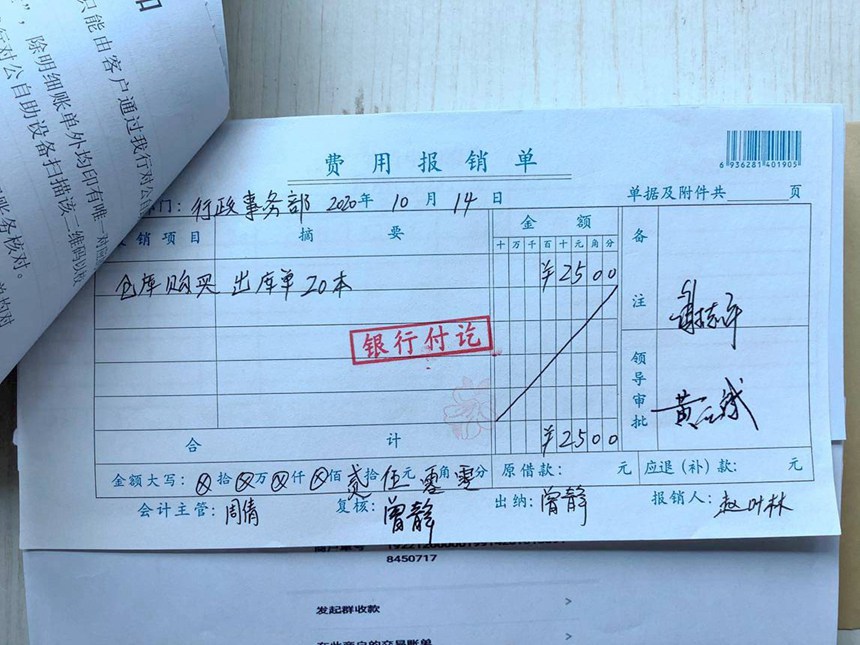 只能由客户通过我行对公自
”，除明细账单外均印有唯一
行对公自助设备扫描该二维码以校
账务核对。
费用报销单
6 936281 401905
门：行政事务部 2020年 10 月 14 日 单据及附件共 页
销项目 摘 要 金 额 备
十 万 千 百 十 元 角 分
仓库购买 出库单20本 ¥2500
注
银行付讫
领导审批
合 计 ¥2500
金额大写：⊗拾⊗万⊗仟⊗佰贰拾伍元零角零分 原借款： 元 应退（补）款： 元
会计主管：周倩 复核：曾静 出纳：曾静 报销人：赵叶林
商户单号
8450717
发起群收款 >
在此商户的交易账单 >